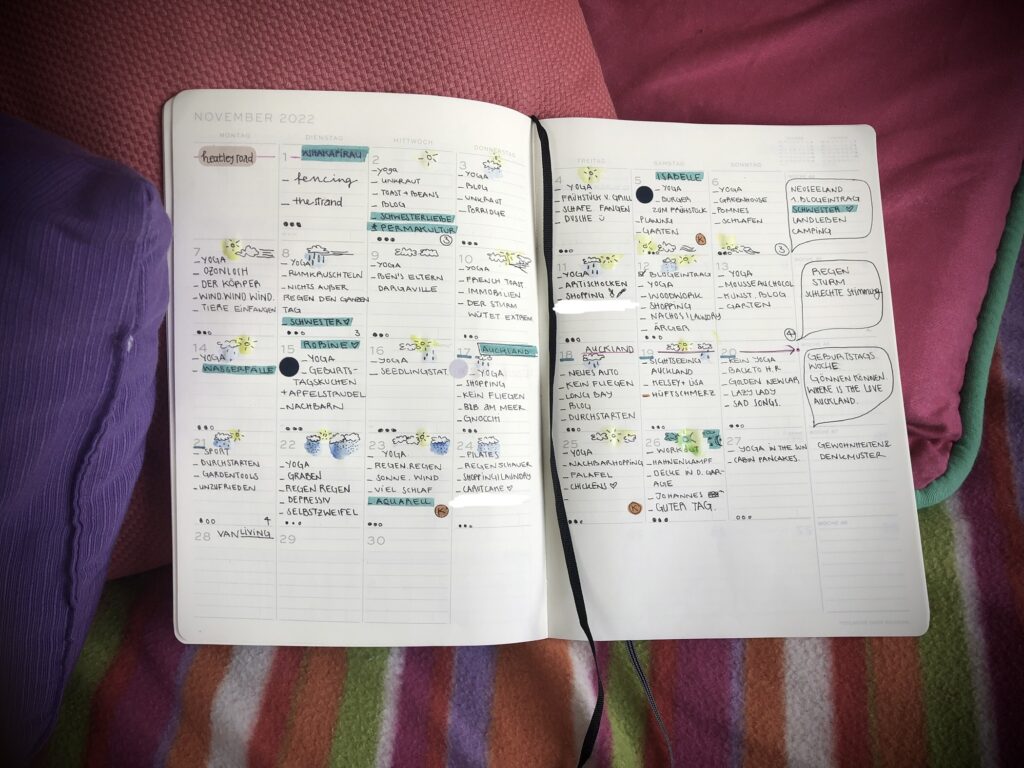 NOVEMBER 2022
MONTAG
DIENSTAG
MITTWOCH
DONNERSTAG
FREITAG
SAMSTAG
SONNTAG
heatley road
1 WHAKAPIRAU
_ fencing
_ the strand
2
_ yoga
_ UNKRAUT
_ TOAST + BEANS
_ BLOG
_ SCHWESTERLIEBE
+ PERMAKULTUR
3
_ YOGA
_ BLOG
_ UNKRAUT
_ PORRIDGE
3
4
_ YOGA
_ FRÜHSTÜCK V. GRILL
_ SCHAFE FANGEN
_ DUSCHE
5 ISABELLE
_ YOGA
_ BURGER
ZUM FRÜHSTÜCK
_ PLANUNG
_ GARTEN
K
6
_ YOGA
_ GREENHOUSE
_ POMMES
_ SCHLAFEN
3
NEUSEELAND
1. BLOGEINTRAG
SCHWESTER
LANDLEBEN
CAMPING
7
_ YOGA
_ OZONLOCH
_ DER KÖRPER
_ WIND. WIND. WIND.
_ TIERE EINFANGEN
8
_ YOGA
_ RUMKRUSCHTELN
_ NICHTS AUßER
REGEN DEN GANZEN
TAG
_ SCHWESTER
3
9
_ YOGA
_ BEN'S ELTERN
DARGAVILLE
10
_ YOGA
_ FRENCH TOAST
_ IMMOBILIEN
_ DER STURM
WÜTET EXTREM
11
_ YOGA
_ ARTISCHOCKEN
_ SHOPPING
12
BLOGEINTRAG
_ YOGA
_ WOODWORK
_ SHOPPING
_ NACHOS | LAUNDRY
_ ÄRGER
13
_ YOGA
_ MOUSSE AU CHOCOL
_ KUNST. BLOG
_ GARTEN
4
REGEN
STURM
SCHLECHTE Stimmung
14
_ YOGA
WASSERFÄLLE
15 ROBINE
_ YOGA
_ GEBURTS-
TAGSKUCHEN
+ APFELSTRUDEL
_ NACHBARN
16
_ YOGA
_ SEEDLINGSTAT.
17 AUCKLAND
_ YOGA
_ SHOPPING
_ KEIN FLIEGEN
_ B&B AM MEER
_ GNOCCHI
18 AUCKLAND
_ NEUES AUTO
_ KEIN FLIEGEN
_ LONG BAY
_ BLOG
_ DURCHSTARTEN
19
_ SIGHTSEEING
AUCKLAND
_ KELSEY + USA
_ HÜFTSCHMERZ
20
_ KEIN YOGA
_ BACK TO H.R
_ GOLDEN NEW CAR
_ LAZY LADY
_ SAD SONGS.
GEBURTSTAGS
WOCHE
GÖNNEN KÖNNEN
WHERE IS THE LOVE
AUCKLAND.
21
_ SPORT
_ DURCHSTARTEN
_ GARDENTOOLS
_ UNZUFRIEDEN
4
22
_ YOGA
_ GRABEN
_ REGEN REGEN
_ DEPRESSIV
_ SELBSTZWEIFEL
23
_ YOGA
_ REGEN. REGEN
_ SONNE. WIND
_ VIEL SCHLAF
_ AQUARELL
K
24
_ PILATES
_ REGENSCHAUER
_ SHOPPING | LAUNDRY
25
_ YOGA
_ NACHBARHOPPING
_ FALAFEL
_ CHICKENS
K
26
_ WORKOUT
_ HAHNENKAMPF
_ DECKE IN D. GAR-
AGE
_ JOHANNES
_ GUTER TAG.
27
_ YOGA IN THE SUN
_ CABIN PANCAKES.
GEWOHNHEITEN &
DENKMUSTER
28 VANLIVING
29
30